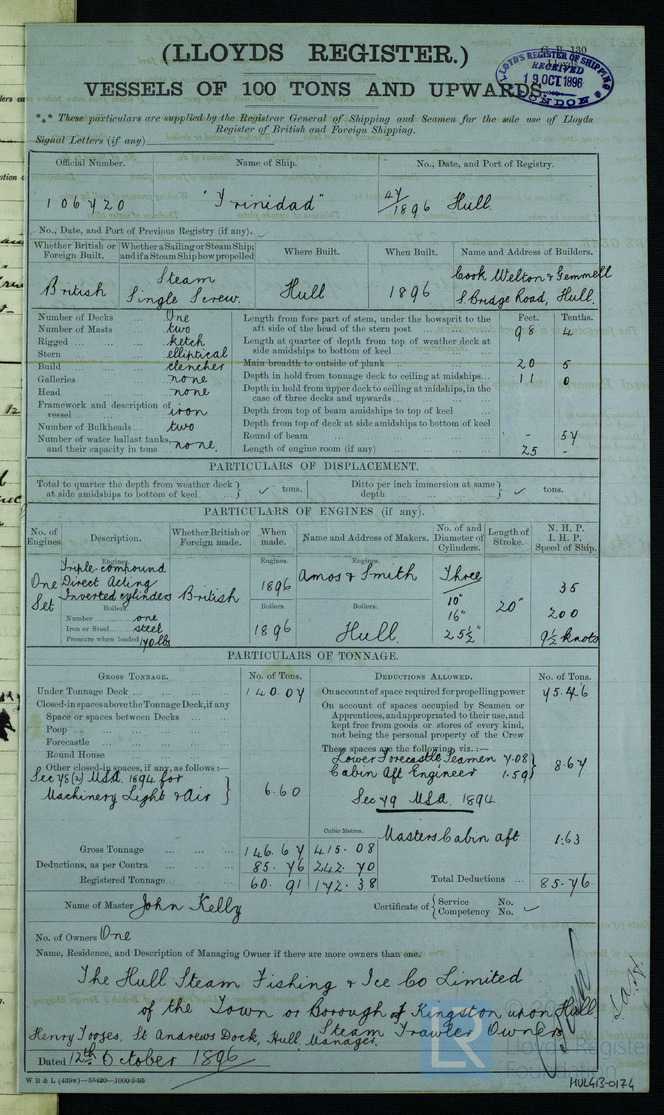 (LLOYDS REGISTER.)
VESSELS OF 100 TONS AND UPWARDS.
LLOYD'S REGISTER OF SHIPPING
RECEIVED
19 OCT 1896
LONDON
*** These particulars are supplied by the Registrar General of Shipping and Seamen for the sole use of Lloyds
Register of British and Foreign Shipping.
Signal Letters (if any)
Official Number. Name of Ship. No., Date, and Port of Registry.
106420 "Trinidad" 47/1896 Hull.
No., Date, and Port of Previous Registry (if any).
Whether British or Foreign Built. Whether a Sailing or Steam Ship; and if a Steam Ship how propelled Where Built. When Built. Name and Address of Builders.
British Steam Single Screw. Hull 1896 Cook Welton & Gemmell
S. Bridge Road, Hull.
Number of Decks One
Number of Masts two
Rigged ketch
Stern elliptical
Build clencher
Galleries none
Head none
Framework and description of vessel iron
Number of Bulkheads two
Number of water ballast tanks, and their capacity in tons none.
Feet. Tenths.
Length from fore part of stem, under the bowsprit to the aft side of the head of the stern post 98 4
Length at quarter of depth from top of weather deck at side amidships to bottom of keel
Main breadth to outside of plank 20 5
Depth in hold from tonnage deck to ceiling at midships 11 0
Depth in hold from upper deck to ceiling at midships, in the case of three decks and upwards
Depth from top of beam amidships to top of keel
Depth from top of deck at side amidships to bottom of keel
Round of beam - 54
Length of engine room (if any) 25 -
PARTICULARS OF DISPLACEMENT.
Total to quarter the depth from weather deck at side amidships to bottom of keel ✓ tons. Ditto per inch immersion at same depth ✓ tons.
PARTICULARS OF ENGINES (if any).
No. of Engines. Description. Whether British or Foreign made. When made. Name and Address of Makers. No. of and Diameter of Cylinders. Length of Stroke. N. H. P. I. H. P. Speed of Ship.
Engines. Engines. Engines.
One Set Triple-compound Direct Acting Inverted cylinders British 1896 Amos & Smith Three 35
Boilers. Boilers. Boilers. 10" 20" 200
Number one 16"
Iron or Steel steel 1896 Hull. 25½" 9½ knots
Pressure when loaded 140 lbs
PARTICULARS OF TONNAGE.
GROSS TONNAGE. No. of Tons. DEDUCTIONS ALLOWED. No. of Tons.
Under Tonnage Deck 140.07
On account of space required for propelling power 75.46
Closed-in spaces above the Tonnage Deck, if any
Space or spaces between Decks
Poop
Forecastle
Round House
Other closed-in spaces, if any, as follows:—
Sec 78(2) M.S.A. 1894 for
Machinery Light & Air 6.60
On account of spaces occupied by Seamen or Apprentices, and appropriated to their use, and kept free from goods or stores of every kind, not being the personal property of the Crew
These spaces are the following, viz.:—
Lower Forecastle Seamen 7.08
Cabin Aft Engineer 1.59
8.67
Sec 79 M.S.A. 1894
Cubic Metres. Masters Cabin aft 1.63
Gross Tonnage 146.67 415.08
Deductions, as per Contra 85.76 242.70
Registered Tonnage 60.91 172.38
Total Deductions 85.76
Name of Master John Kelly
Certificate of Service No. Competency No. ✓
No. of Owners One
Name, Residence, and Description of Managing Owner if there are more owners than one.
The Hull Steam Fishing & Ice Co Limited
of the Town or Borough of Kingston upon Hull
Steam Trawler Owners
Henry Toozes, St Andrews Dock, Hull, Manager.
Dated 12th October 1896
W B & L (439w)—55420—1000-9-95
LR
Lloyd's Register
Foundation
HUL413-0174